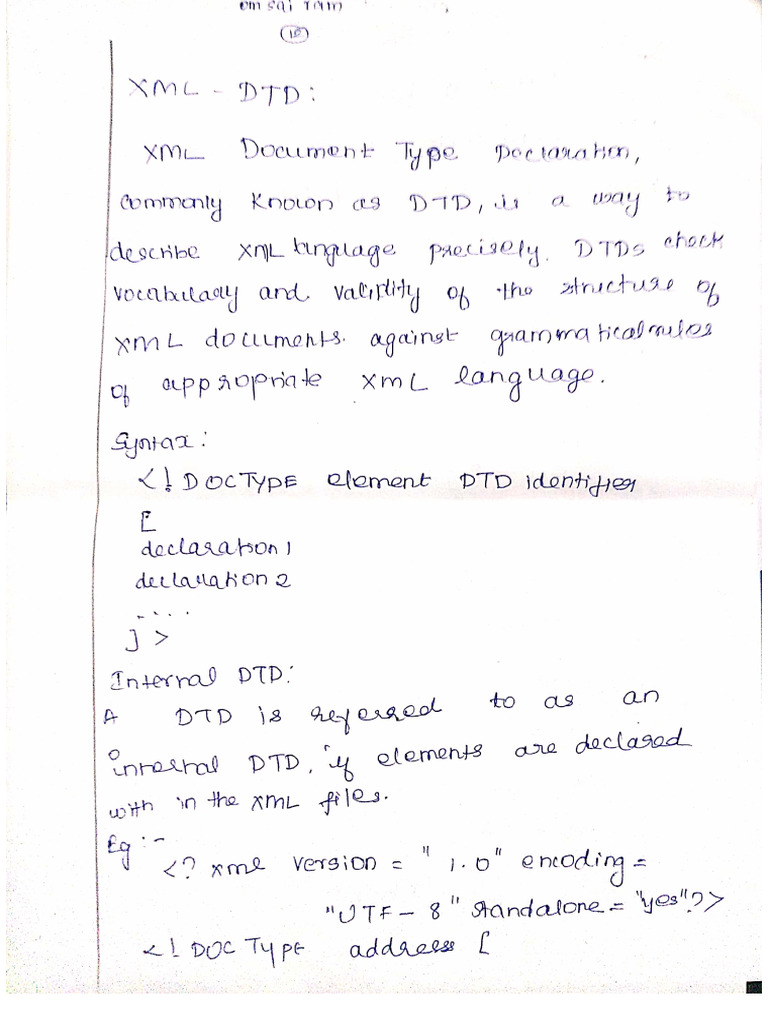 om sai ram
10
XML - DTD:
XML Document Type Declaration,
commonly known as DTD, is a way to
describe XML language precisely. DTDs check
vocabulary and validity of the structure of
XML documents against grammatical rules
of appropriate XML language.
Syntax:
<! DOCTYPE element DTD identifier
[
declaration 1
declaration 2
....
] >
Internal DTD:
A DTD is referred to as an
internal DTD, if elements are declared
with in the XML files.
Eg :-
<? xml version = " 1.0" encoding =
"UTF - 8" standalone = "yes"?>
<! DOC TYPE address [